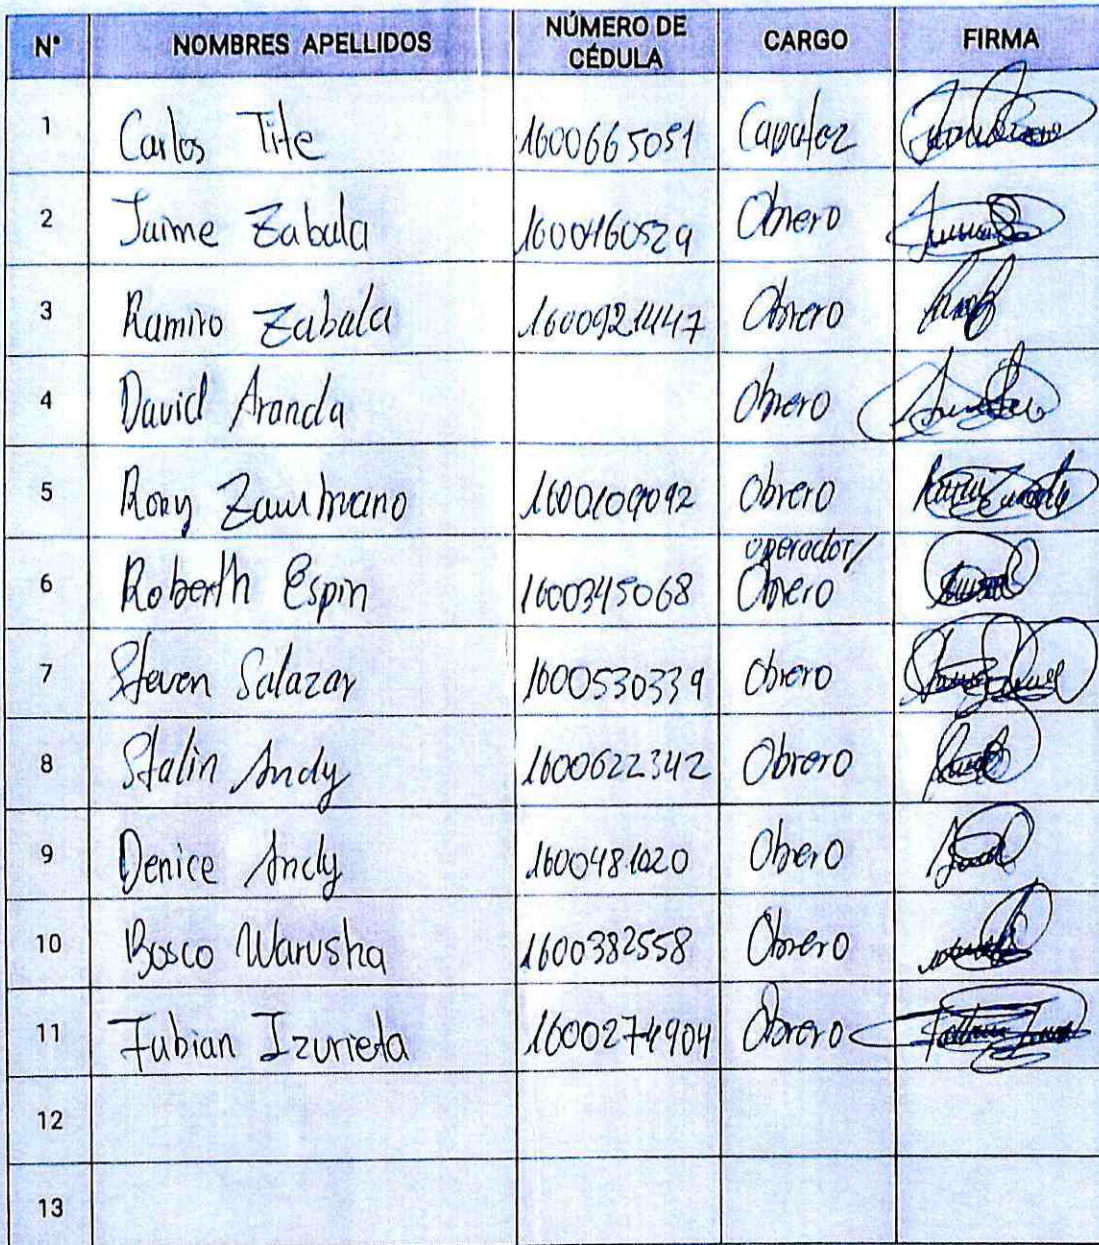 N° NOMBRES APELLIDOS NÚMERO DE CÉDULA CARGO FIRMA
1 Carlos Tite 1600665051 Capataz
2 Jaime Zabala 1600460529 Obrero
3 Ramiro Zabala 1600921447 Obrero
4 David Aranda Obrero
5 Rony Zambrano Obrero
6 Roberth Espin 1600345068 operador/ Obrero
7 Steven Salazar 1600530339 Obrero
8 Stalin Andy 1600622342 Obrero
9 Denice Andy 1600481020 Obrero
10 Bosco Warusha 1600382558 Obrero
11 Fabian Izurieta 1600274904 Obrero
12
13